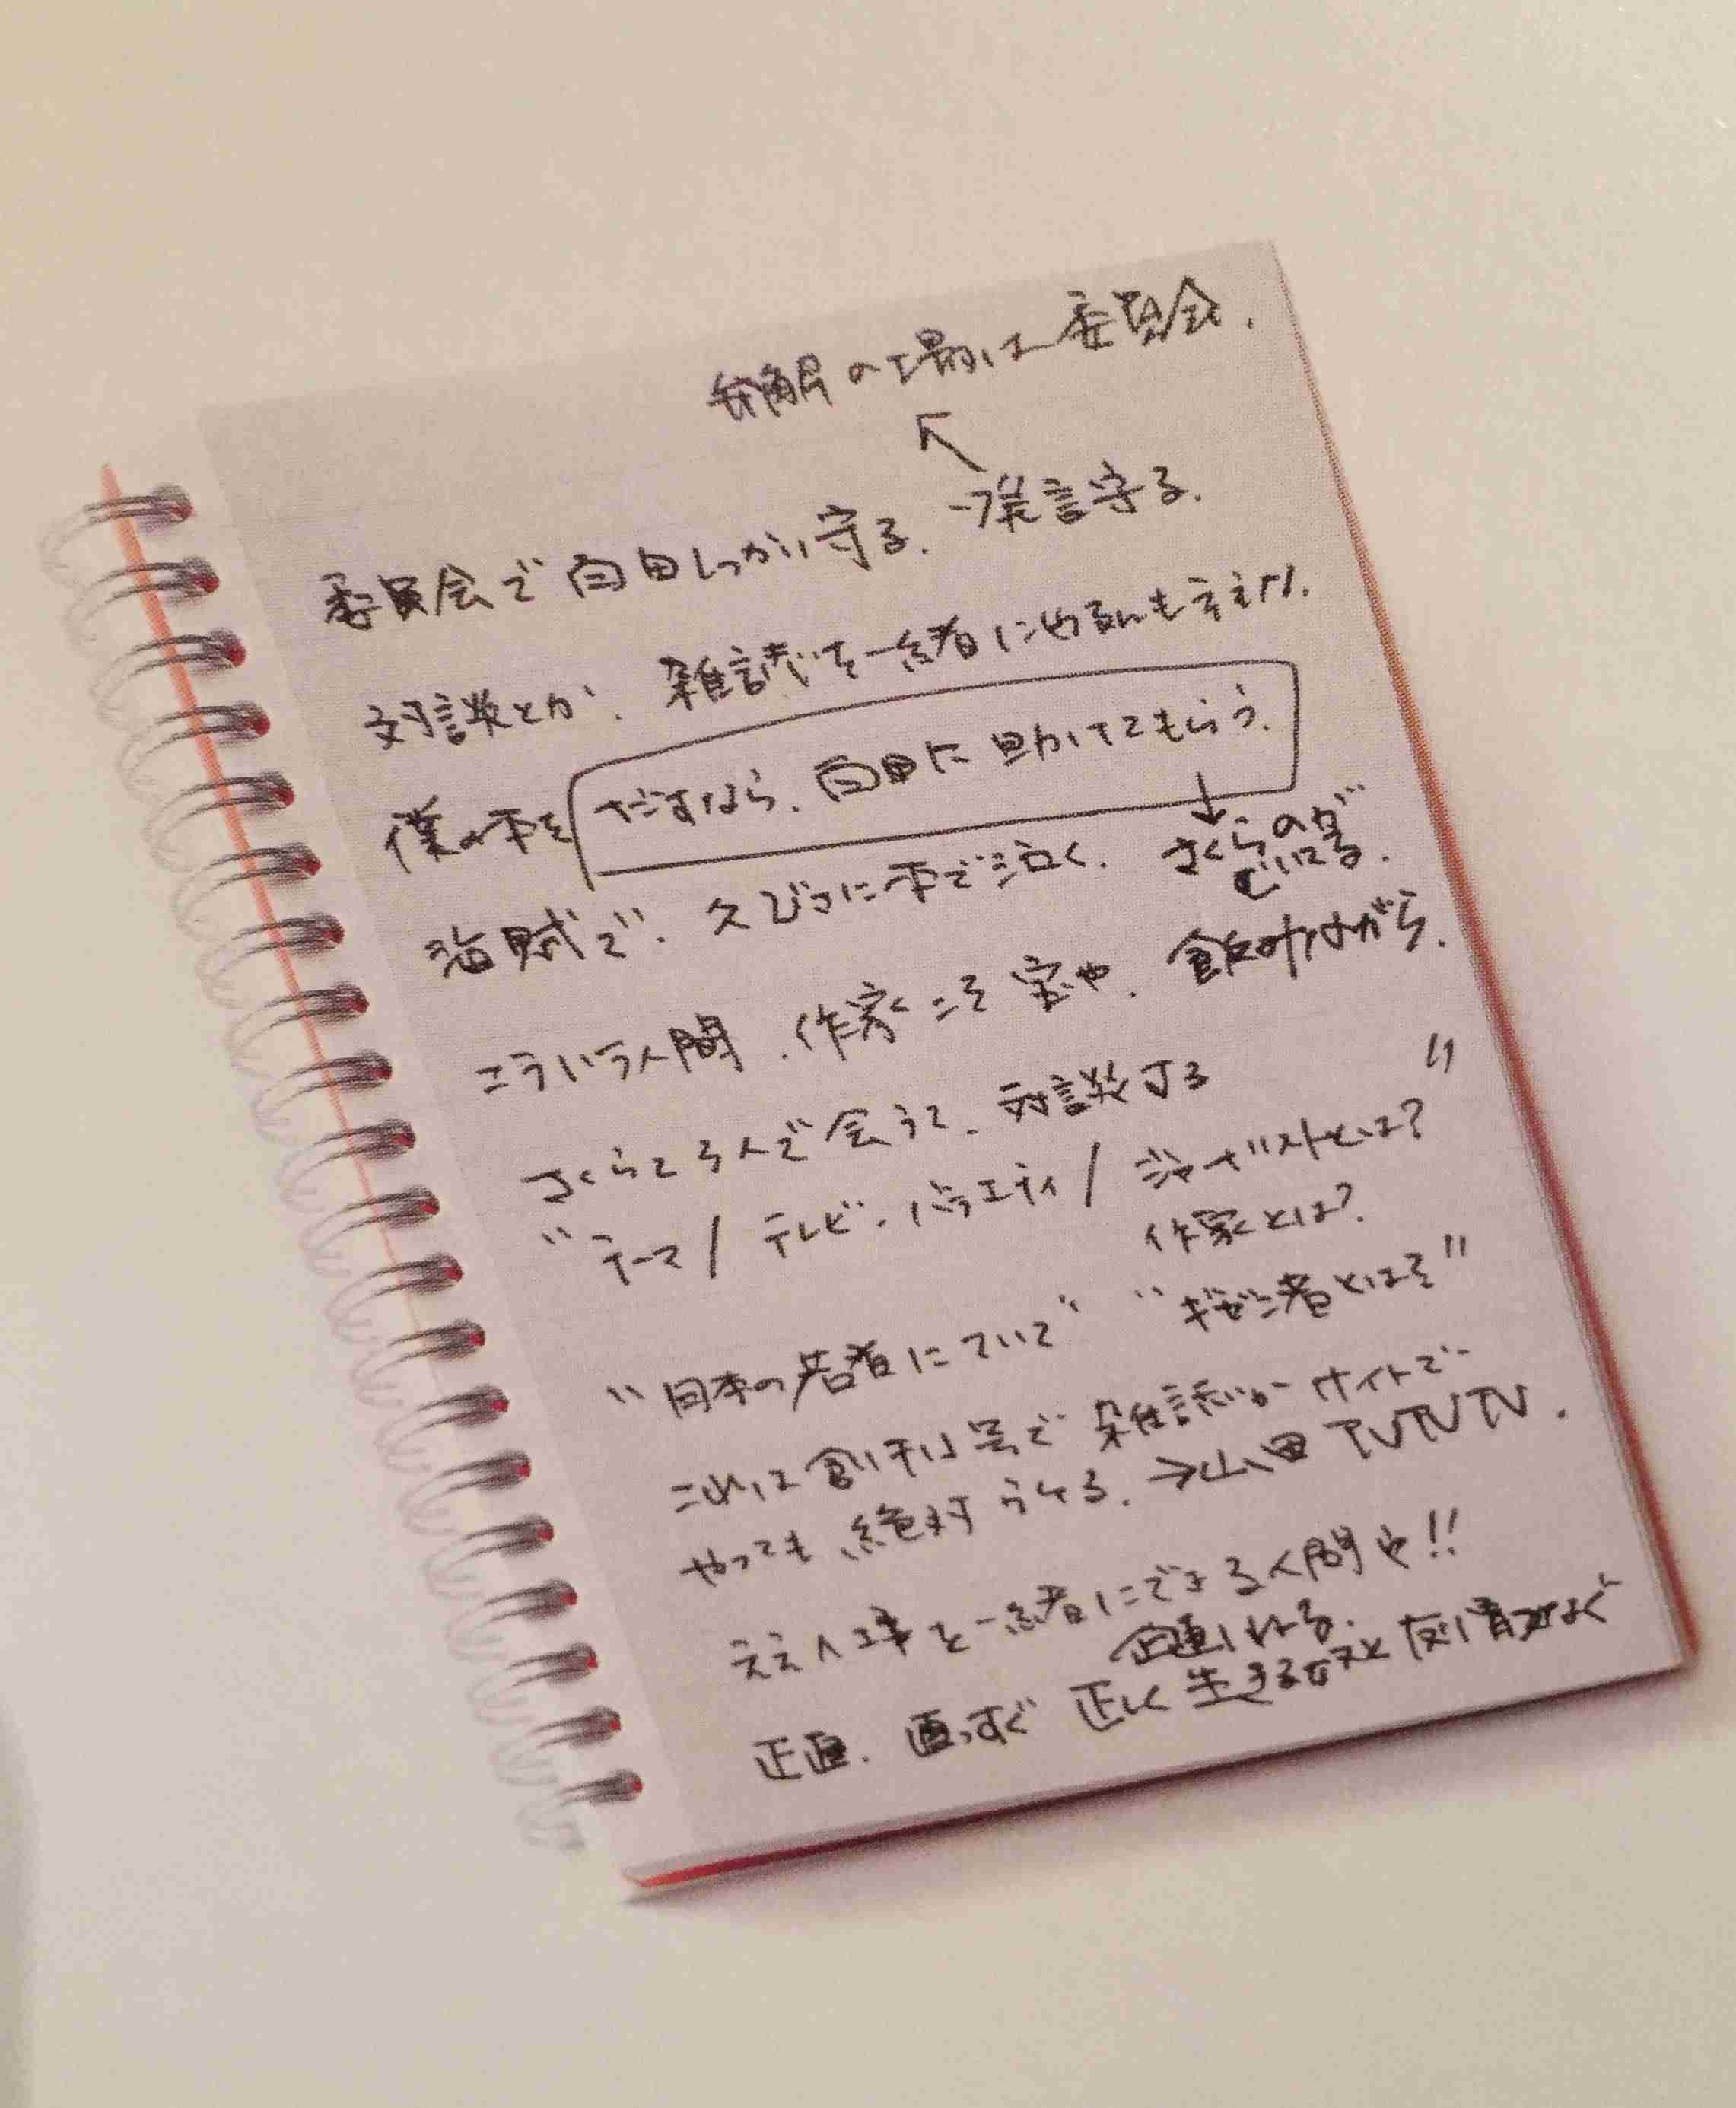 弁解の場は委員会.
委員会で向田しっかり守る. →発言守る.
対談とか. 雑誌を一緒にやるんもええな.
僕の本をだすなら. 向田に助けてもらう.
で. 久びさに本で泣く. さくらのが
こういう人間. 作家こそ宝や. 飲みながら.
さくらと3人で会うて. 対談する
"テーマ/テレビ.バラエティ/ジャーナリストとは?"
作家とは?
"日本の若者について" "ギゼン者とは?"
これは創刊号で雑誌かサイトで
やっても、絶対うける. →山田 TVTVTV.
ええ仕事を一緒にできる人間や!!
正直. 真っすぐ 正しく 生きる